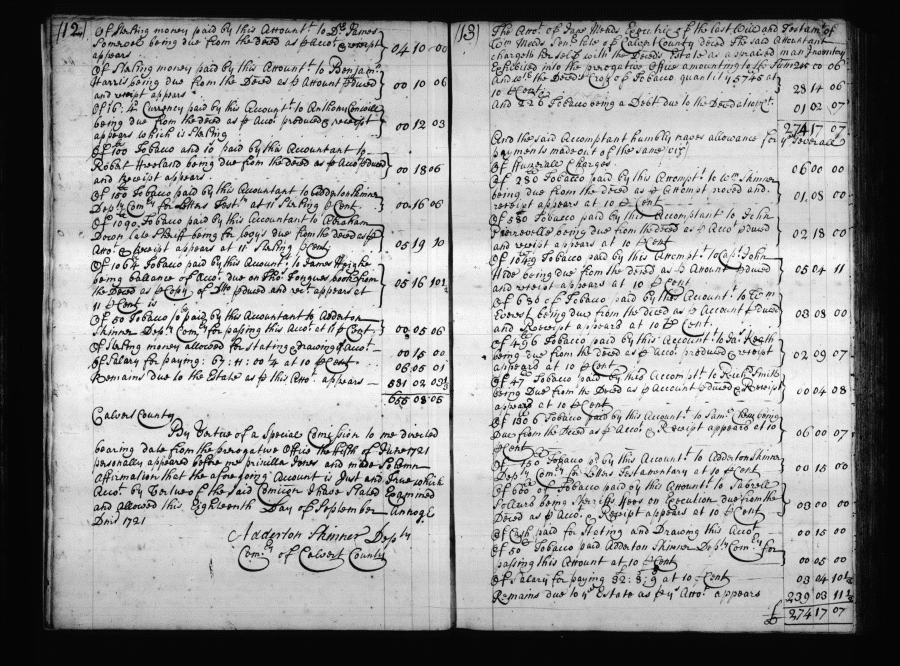 (12)
Of Starling money paid by this Accomt. to Dr. James
Somervel being due from the Deced as p Accot. & receipt
appears 04 10 00
Of Starling money paid by this Accountt. to Benjamn.
Harris being due from the Deced as p Attount pduced
and receipt appears 00 10 06
Currency paid by this Accountt. to Anthony
being due from the deced as p Acco. produced & receipt
appears which is Starling 00 12 03
Of 100 Tobacco and is paid by this Accountant to
Robert Freeland being due from the deced as p Acco pduced
and Receipt appears 00 18 06
Of 150 Tobacco paid by this Accountant to Adderton Skinner
Depty. Comy. for Letters Testy. at 11s Starling p Cent 00 16 06
Of 1090 Tobacco paid by this Accountant to Abraham
Down late Sheriff being for Levys due from the deced as p
Acco. & Receipt appears at 11s Starling p Cent 05 19 10
Of 1064 Tobacco paid by this Accountt. to James Heighe
being ballance of Acco. due on Tho. Tongues books from
the Deced as p Copy of Do. pduced and rect. appears at
11s p Cent is 05 16 10½
Of 50 Tobacco so paid by this Accountant to Adderton
Skinner Depty. Comy. for passing this Acco. at 11s p Cent 00 05 06
Of Starling money allowed for stating & drawing this Acco. 00 15 00
Of Salary for paying : 67 : 11 : 00¼ at 10 p Cent 06 05 01
Remains due to the Estate as p this Acco. appears 581 02 03½
655 08 05
Calvert County
By Vertue of a Special Comission to me directed
bearing date from the prerogative Office the fifth of June 1721
personally appeared before me prisilla Jones and made Solemn
Affirmation that the afore going Account is Just and true which
Acco. by Vertue of the said Comission I have Stated Examined
and allowed this Eighteenth Day of September Annoq
Dni 1721
Adderton Skinner Depty
Comy. of Calvert County
(13)
The Acco. of Jane Meads Executrix of the last Will and Testamt. of
Wm. Meads Senr. late of Calvert County Deced The said Accountant
chargeth her self with the Deced Estate as a praised in an Inventory
Exhibited into the prerogative Office amounting to the Sum 245 00 06
And wth. the Deced Crop of Tobacco quantity 5745 at
10 p Cent 28 14 06
And 826 Tobacco being a Debt due to the Deced at 10 pCt. 01 02 07
274 17 07
And the said Accomptant humbly prayes allowance for ye. Severall
payments made out of the same viz
Of Funerall Charges 06 00 00
Of 280 Tobacco paid by this Attompt. to Wm. Skinner
being due from the deced as p Attompt proved and
receipt appears at 10 p Cent 01 08 00
Of 580 Tobacco paid by this Accomptant to John
being due from the deced as p Acco. pduced
and receipt appears at 10 p Cent 02 18 00
Of 1049 Tobacco paid by this Attompt. to Capt. John
Hide being due from the Deced as p Amount pduced
and receipt appears at 10 p Cent 05 04 11
Of 680 of Tobacco paid by this Accountt. to Wm
Everest being due from the Deced as p Account pduced
and Receipt appeard at 10 p Cent 03 08 00
Of 496 Tobacco paid by this Accountt. to Ja. Heath
being due from the Deced as p Acco. produced & receipt
appeard at 10 p Cent 02 09 07
Of 47 Tobacco paid by this Accomptt. to Richd. Smith
being Due from the Deced as p Account pduced & Receipt
appeard at 10 p Cent 00 04 08
Of 1206 Tobacco paid by this Accountt. to Saml. being
Due from the Deced as p Acco. & Receipt appeard at 10
p Cent 06 00 07
Of 150 Tobacco pd. by this Accountt. to Adderton Skinner
Depty. Comy. for Letters Testamentary at 10 p Cent 00 15 00
Of 600 of Tobacco paid by this Amountt. to
Sollers being Sherriffs Fees on Execution due from the
Deced as p Acco. & Receipt appears at 10 p Cent 03 00 00
Of Cash paid for Stating and Drawing this Acco. 00 15 00
Of 50 Tobacco paid Adderton Skinner Depty. Comy. for
passing this Amount at 10 p Cent 00 05 00
Of Salary for paying 32 : 8 : 9 at 10 p Cent 03 04 10½
Remains due to ye Estate as p ye. Acco. appears 239 03 11½
£ 274 17 07